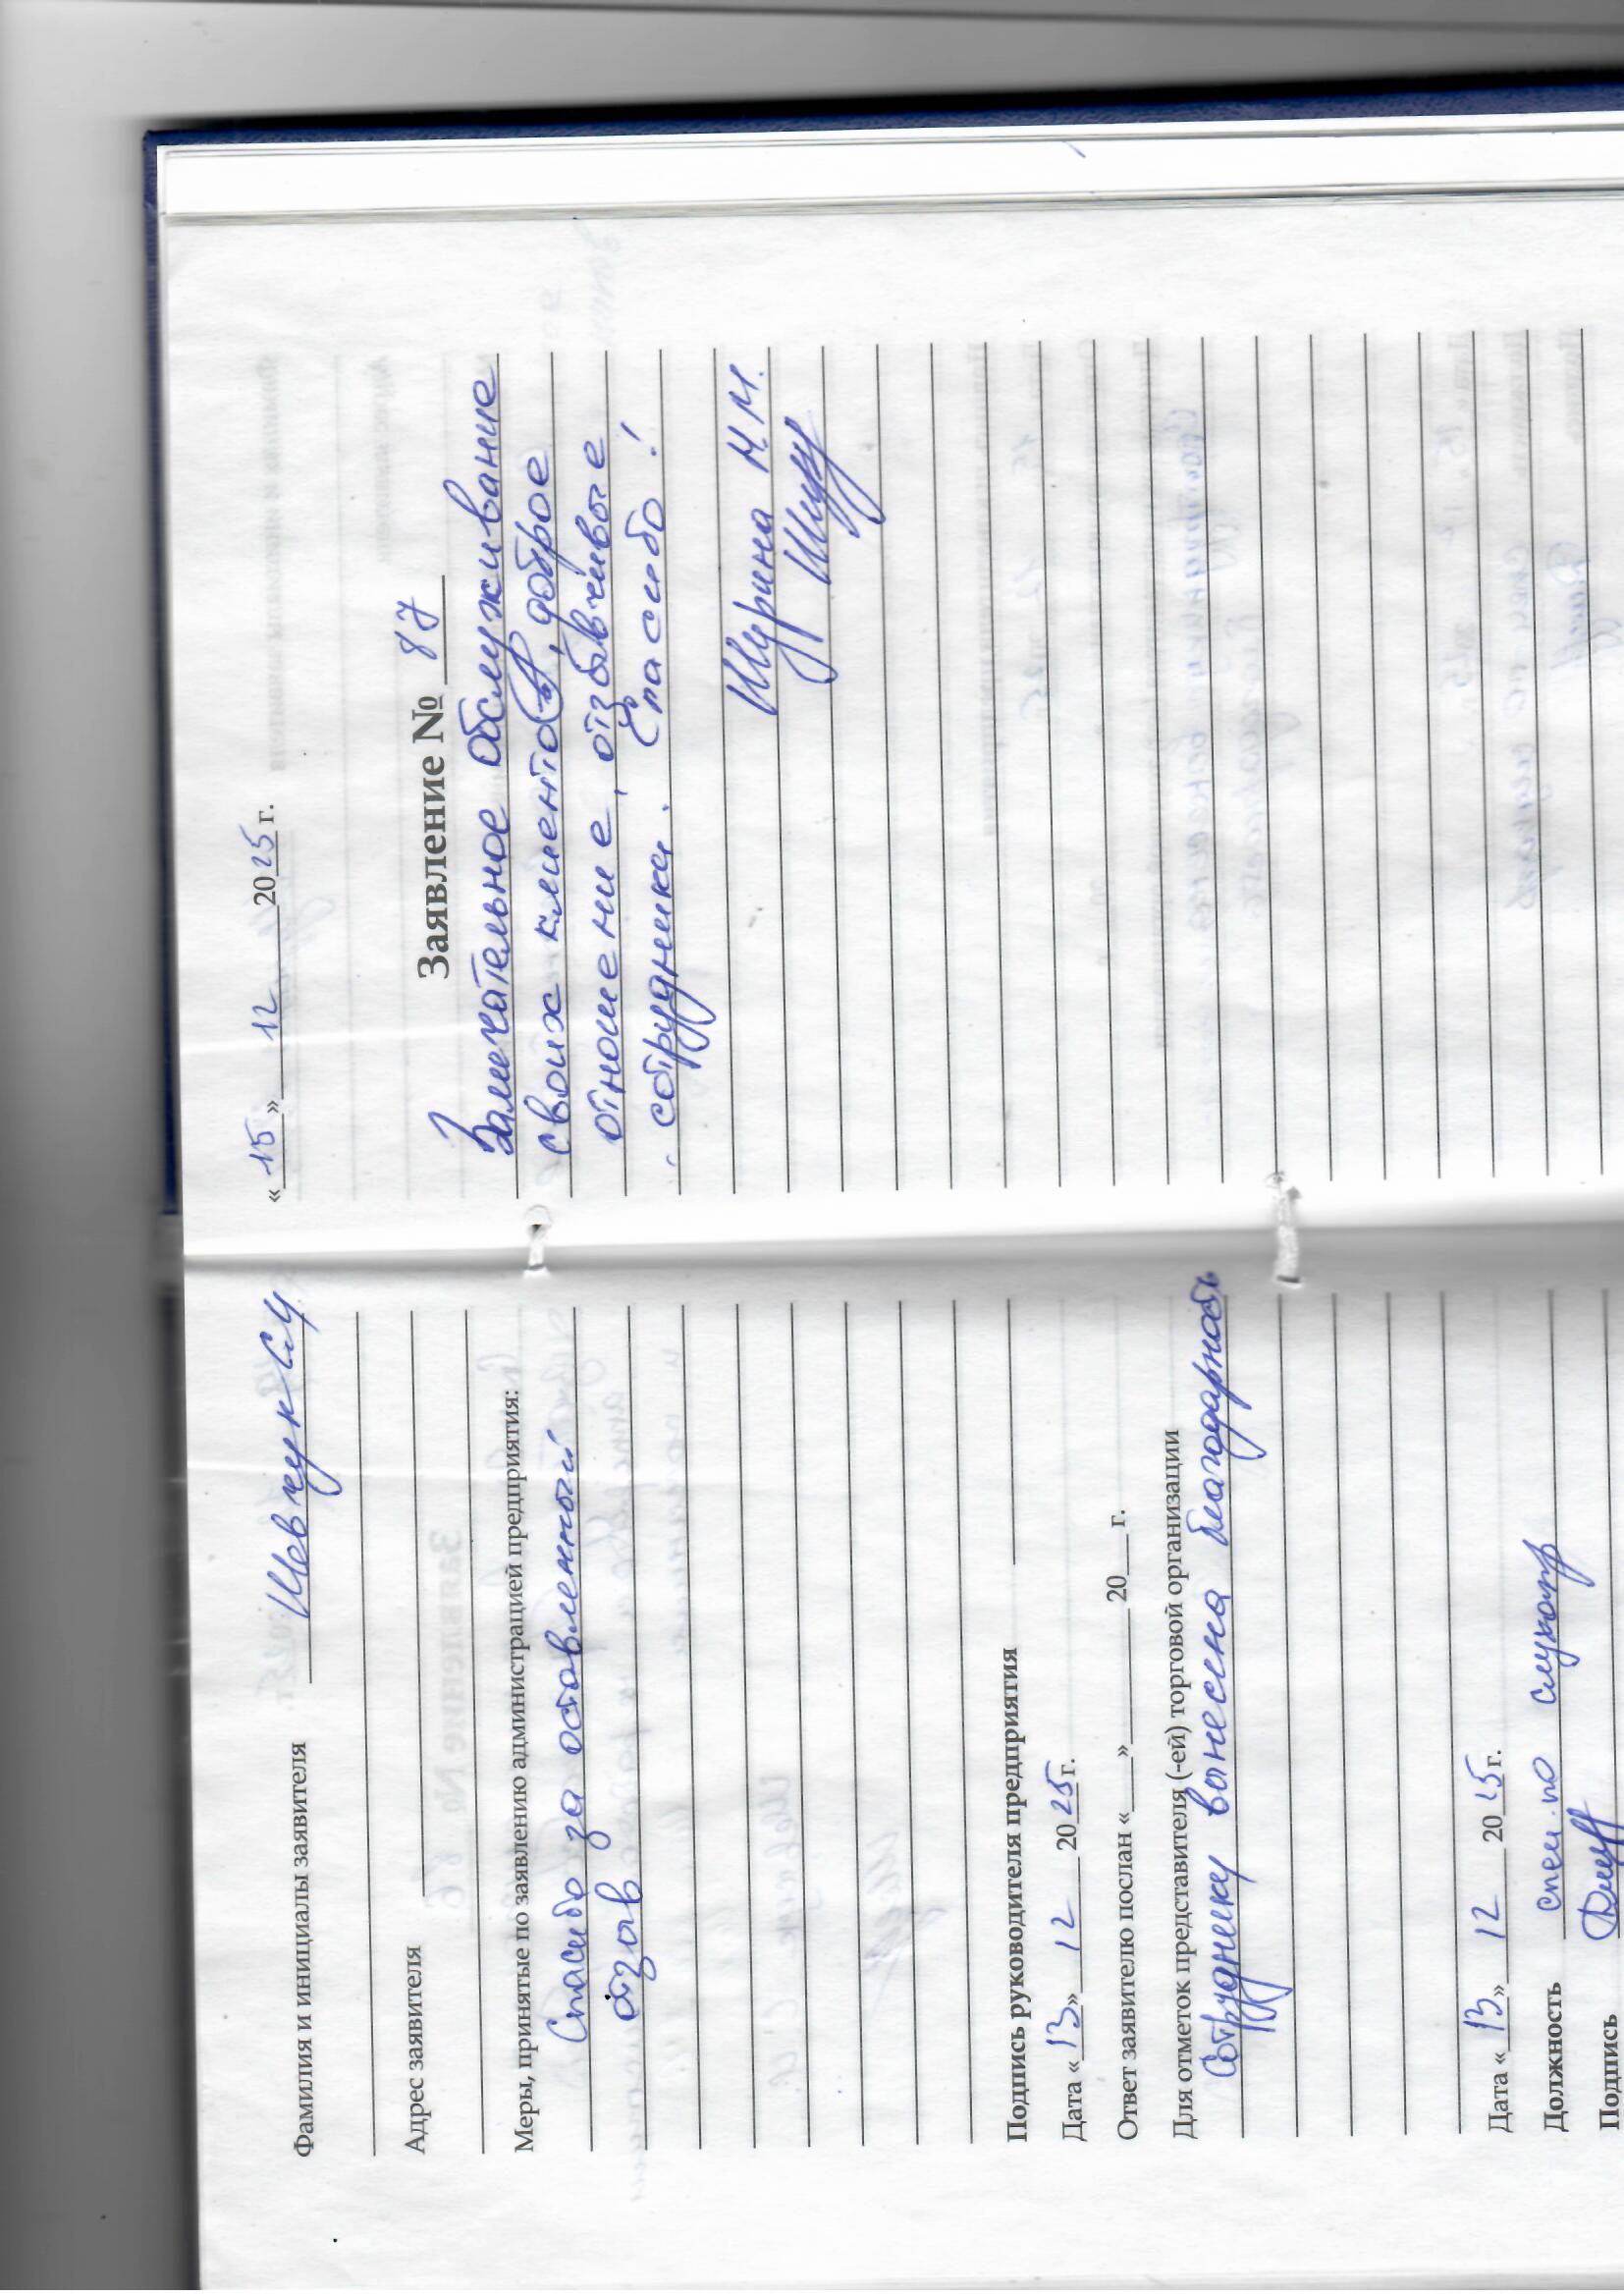 Фамилия и инициалы заявителя Шевчук С.Ч
Адрес заявителя
Меры, принятые по заявлению администрацией предприятия:
Спасибо за оставленный
отзыв
Подпись руководителя предприятия
Дата «13» 12 2025 г.
Ответ заявителю послан «___»________20___г.
Для отметок представителя (-ей) торговой организации
Сотруднику вынесена благодарность
Дата «13» 12 2025 г.
Должность спец. по слухопр
Подпись
«15» 12 2025 г.
Заявление № 87
Замечательное обслуживание
своих клиентов, доброе
отношение, отзывчивые
сотрудники. Спасибо!
Шурина М.М.